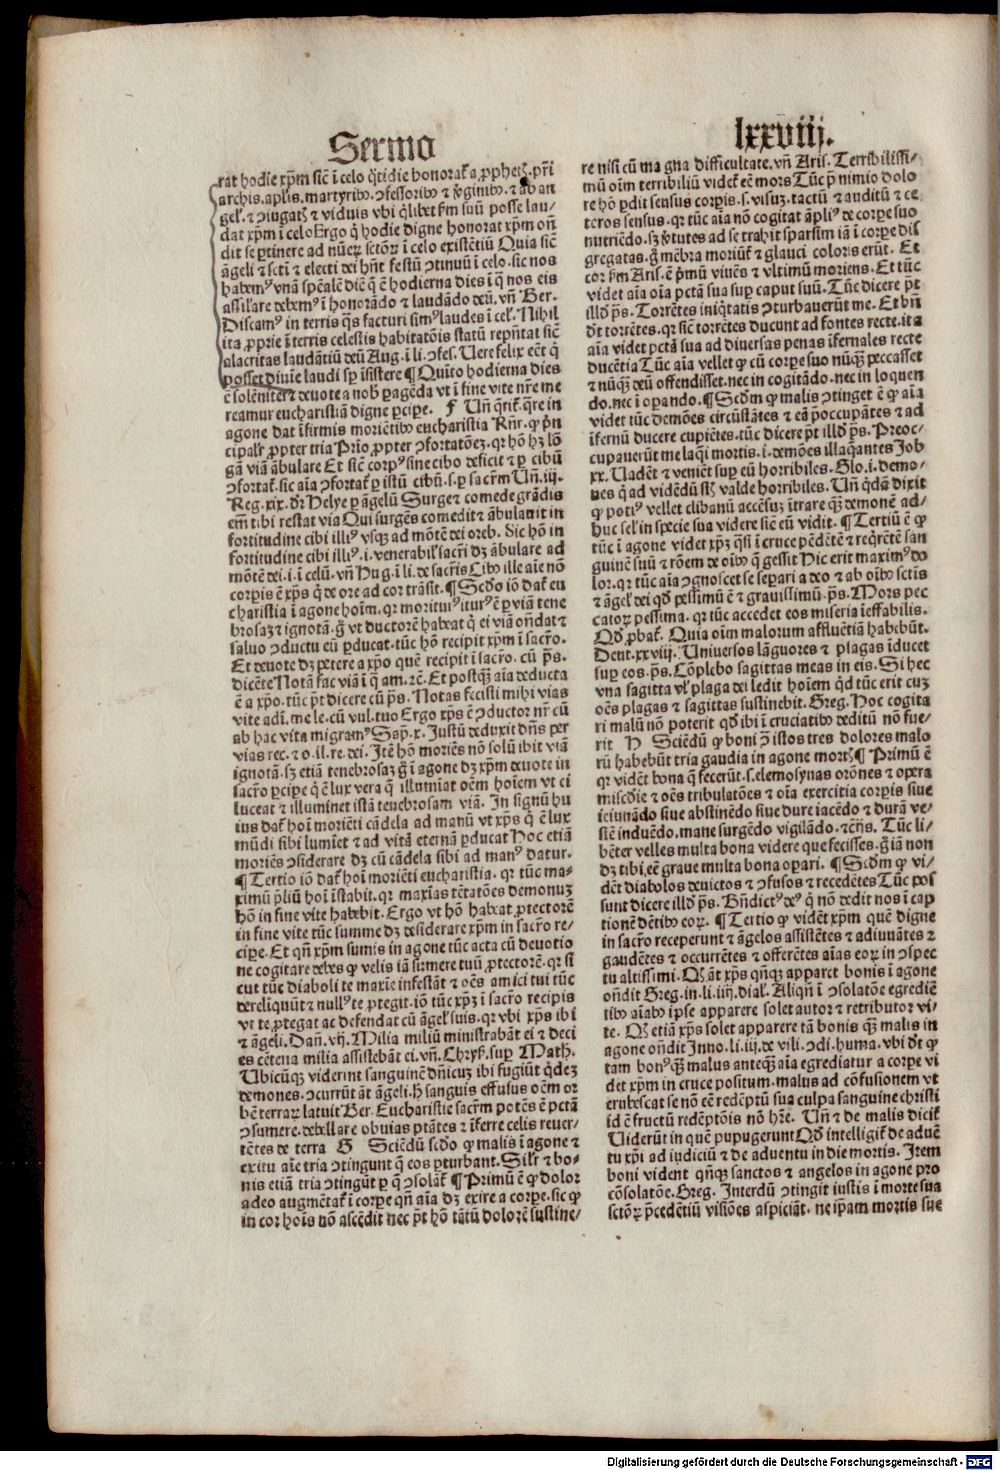 Sermo
lxxviij.
rat hodie xp̄m sic̄ ī celo q̄tidie honorat̄ a ꝓphetꝭ. pr̄i
archis. apl̄is. martyribꝰ. ꝯfessoribꝰ ⁊ v̄ginibꝰ. ⁊ ab an
gel̄. ⁊ ꝯiugatꝭ ⁊ viduis vbi q̄libet ẜm suū posse lau⸗
dat xp̄m ī celo Ergo q̄ hodie digne honorat xp̄m on̄
dit se ꝑtinere ad nūeꝝ sctōꝝ ī celo existētiū Quia sic̄
āgeli ⁊ scti ⁊ electi dei hn̄t festū ꝯtinuū ī celo. sic nos
habemꝰ vnā spēalē diē q̄ ē hodierna dies ī q̄ nos eis
assil̄are debemꝰ ī honorādo ⁊ laudādo deū. vn̄ Ber.
Discamꝰ in terris q̄s facturi simꝰ laudes ī cel̄. Nihil
ita ꝓprie ī terris celestis habitatōis statū repn̄tat sic̄
alacritas laudātiū deū Aug. ī li. ꝯfes. Uere felix eēt q̄
posset diuīe laudi sꝑ īsistere ¶ Quīto hodierna dies
ē solēniter ⁊ deuote a nob̄ ꝑagēda vt ī fine vite nr̄e me
reamur eucharistiā digne ꝑciꝑe. F Un̄ q̄rit̄. q̄re in
agone dat̄ īfirmis moriētibꝰ eucharistia Rn̄r. ꝙ p̄n
cipalr̄ ꝓpter tria Prīo ꝓpter ꝯfortatōeꝫ. qr hō hꝫ lō
gā viā ābulare Et sic̄ corpꝰ sine cibo deficit ⁊ ꝑ cibū
ꝯfortat̄. sic aīa ꝯfortat̄ ꝑ istū cibū. s. ꝑ sacr̄m Un̄. iij.
Reg. xix. dr̄ Helye ꝑ āgelū Surge ⁊ comede grādis
em̄ tibi restat via Qui surgēs comedit ⁊ ābulauit in
fortitudine cibi illiꝰ vsqꝫ ad mōtē dei oreb. Sic hō in
fortitudine cibi illiꝰ. i. venerabil̄ sacr̄i dꝫ ābulare ad
mōtē dei. i. ī celū. vn̄ Hug. ī li. de sacr̄is Cibꝰ ille aīe nō
corꝑis ē xp̄s q̄ de ore ad cor trāsit. ¶ Scd̄o iō dat̄ eu
charistia ī agone hoīm. qr moriturꝰ iturꝰ ē ꝑ viā tene
brosaꝫ ⁊ ignotā. gͦ vt ductorē habeat q̄ ei viā on̄dat ⁊
saluo ꝯductu eū ꝑducat. tūc hō recipit xp̄m ī sacr̄o.
Et deuote dꝫ petere a xp̄o quē recipit ī sacr̄o. cū ps̄.
dicēte Notā fac viā ī q̄ am. rē. Et postqꝫ aīa deducta
ē a xp̄o. tūc p̄t dicere cū ps̄. Notas fecisti mihi vias
vite adī. me le. cū vul. tuo Ergo xp̄s ē ꝯductor nr̄ cū
ab hac vita migramꝰ Sap̄. x. Justū deduxit dn̄s per
vias rec. ⁊ o. il. re. dei. Itē hō moriēs nō solū ibit viā
ignotā. sꝫ etiā tenebrosaꝫ gͦ ī agone dꝫ xp̄m deuote in
sacr̄o ꝑciꝑe q̄ ē lux vera q̄ illumīat oēm hoīem vt ei
luceat ⁊ illuminet istā tenebrosam viā. In signū hu
ius dat̄ hoī moriēti cādela ad manū vt xp̄s q̄ ē lux
mūdi sibi lumīet ⁊ ad vitā eternā ꝑducat Hoc etiā
moriēs ꝯsiderare dꝫ cū cādela sibi ad manꝰ datur.
¶ Tertio iō dat̄ hoī moriēti eucharistia. qr tūc ma⸗
ximū p̄liū hoī īstabit. qr maxīas tētatōes demonuꝫ
hō in fine vite habebit. Ergo vt hō habeat ꝓtectorē
in fine vite tūc summe dꝫ desiderare xp̄m in sacr̄o re⸗
ciꝑe. Et qn̄ xp̄m sumis in agone tūc acta cū deuotio
ne cogitare debes ꝙ velis iā sumere tuū ꝓtectorē. qr si
cut tūc diaboli te maxīe infestāt ⁊ oēs amici tui tūc
dereliquūt ⁊ nullꝰ te ꝓtegit. iō tūc xp̄ꝫ ī sacr̄o recipis
vt te ꝓtegat ac defendat cū āgel̄ suis. qr vbi xp̄s ibi
⁊ āgeli. Dan̄. vij. Milia miliū ministrabāt ei ⁊ deci
es cētena milia assistebāt ei. vn̄. Chryſ. suꝑ Math.
Ubicūqꝫ viderint sanguinē dn̄icuꝫ ibi fugiūt q̄deꝫ
demones. ꝯcurrūt āt āgeli. H sanguis effusus oēm or
bē terraꝝ lauit Ber. Eucharistie sacr̄m potēs ē pctā
ꝯsumere. debellare obuias ptātes ⁊ īferre celis reuer⸗
tētes de terra G Sciēdū scd̄o ꝙ malis ī agone ⁊
exitu aīe tria ꝯtingunt q̄ eos ꝑturbant. Silr̄ ⁊ bo⸗
nis etiā tria ꝯtingūt ꝑ q̄ ꝯsolāt̄ ¶ Primū ē ꝙ dolor
adeo augmētat̄ ī corꝑe qn̄ aīa dꝫ exire a corꝑe. sic ꝙ
in cor hoīs nō ascēdit nec p̄t hō tātū dolorē sustine⸗
re nisi cū magna difficultate. vn̄ Aris. Terribilissi⸗
mū oīm terribiliū videt̄ eē mors Tūc p̄ nimio dolo
re hō ꝑdit sensus corꝑis. s. visuꝫ. tactū ⁊ auditū ⁊ ce
teros sensus. qr tūc aīa nō cogitat āpliꝰ de corꝑe suo
nutriēdo. sꝫ v̄tutes ad se trahit sparsim iā ī corꝑe dis
gregatas. gͦ mēbra moriūt̄ ⁊ glauci coloris erūt. Et
cor ẜm Aris. ē p̄mū viuēs ⁊ vltimū moriens. Et tūc
videt aīa oīa pctā sua suꝑ caput suū. Tūc dicere p̄t
illd̄ ps̄. Torrētes iniqͥtatis ꝯturbauerūt me. Et bn̄
dr̄ torrētes. qr sic̄ torrētes ducunt ad fontes recte. ita
aīa videt pctā sua ad diuersas penas īfernales recte
ducētia Tūc aīa vellet ꝙ cū corꝑe suo nūqꝫ peccasset
⁊ nūqꝫ deū offendisset. nec in cogitādo. nec in loquen
do. nec ī oꝑando. ¶ Scd̄m ꝙ malis ꝯtinget ē ꝙ aīa
videt tūc demōes circūstātes ⁊ eā p̄occupātes ⁊ ad
īfernū ducere cupiētes. tūc dicere p̄t illd̄ ps̄. Preoc⸗
cupauerūt me laq̄i mortis. i. demōes illaq̄antes Job
xx. Uadēt ⁊ veniēt suꝑ eū horribiles. Glo. i. demo⸗
nes q̄ ad vidēdū st̄ valde horribiles. Un̄ q̄dā dixit
ꝙ potiꝰ vellet clibanū accēsuꝫ ītrare qꝫ demonē ad⸗
huc sel̄ in specie sua videre sic̄ eū vidit. ¶ Tertiū ē ꝙ
tūc ī agone videt xp̄ꝫ q̄si ī cruce pēdētē ⁊ reqͥrētē san
guinē suū ⁊ rōem de oībꝰ q̄ gessit Hic erit maximꝰ do
lor. qr tūc aīa ꝯgnoscet se seꝑari a deo ⁊ ab oībꝰ sctīs
⁊ āgel̄ dei qd̄ pessimū ē ⁊ grauissimū. ps̄. Mors pec
catoꝝ pessima. qr tūc accedet eos miseria ineffabilis.
Qd̄ ꝓbat̄. Quia oīm malorum affluētiā habebūt.
Deut. xxviij. Uniuersos lāguores ⁊ plagas īducet
suꝑ eos. ps̄. Cōplebo sagittas meas in eis. Si hec
vna sagitta vl̄ plaga dei ledit hoīem qd̄ tūc erit cuꝫ
oēs plagas ⁊ sagittas sustinebit. Greg. Hoc cogita
ri malū nō poterit qd̄ ibi ī cruciatibꝰ deditū nō fue⸗
rit H Sciēdū ꝙ boni ꝯ istos tres dolores malo
rū habebūt tria gaudia in agone mortꝭ ¶ Primū ē
qr vidēt bona q̄ fecerūt. s. elemosynas orōnes ⁊ opera
misc̄die ⁊ oēs tribulatōes ⁊ oīa exercitia corꝑis siue
ieiunādo siue abstinēdo siue dure iacēdo ⁊ durā ve⸗
stē induēdo. mane surgēdo vigilādo. ⁊cēꝭ. Tūc li⸗
bēter velles multa bona videre que fecisses. gͦ iā non
dꝫ tibi eē graue multa bona oꝑari. ¶ Scd̄m ꝙ vi⸗
dēt diabolos deuictos ⁊ ꝯfusos ⁊ recedētes Tūc pos
sunt dicere illd̄ ps̄. Bn̄dictꝰ deꝰ q̄ nō dedit nos ī cap
tionē dētibꝰ eoꝝ. ¶ Tertio ꝙ vidēt xp̄m quē digne
in sacr̄o receperunt ⁊ āgelos assistētes ⁊ adiuuātes ⁊
gaudētes ⁊ occurrētes ⁊ offerētes aīas eoꝝ in ꝯspec
tu altissimi. Qꝙ āt xp̄s qn̄qꝫ apparet bonis ī agone
on̄dit Greg. in. li. iiij. dial̄. Aliqn̄ ī ꝯsolatōe egrediē
tibꝰ aīabꝰ ipse apparere solet autor ⁊ retributor vi⸗
te. Qꝙ etiā xp̄s solet apparere tā bonis qꝫ malis in
agone on̄dit Inno. li. iij. de vili. ꝯdi. huma. vbi dr̄ ꝙ
tam bonꝰ qꝫ malus anteqꝫ aīa egrediatur a corpe vi
det xp̄m in cruce positum. malus ad cōfusionem vt
erubescat se nō eē redēptū sua culpa sanguine christi
id ē fructū redēptōis nō hr̄e. Un̄ ⁊ de malis dicit̄
Uiderūt in quē pupugerunt Qd̄ intelligit̄ de aduē
tu xp̄i ad iudiciū ⁊ de aduentu in die mortis. Item
boni vident qn̄qꝫ sanctos ⁊ angelos in agone pro
cōsolatōe. Greg. Interdū ꝯtingit iustis ī morte sua
sctōꝝ p̄cedētiū visiōes aspiciāt. ne ip̄am mortis sue
Digitalisierung gefördert durch die Deutsche Forschungsgemeinschaft - DFG